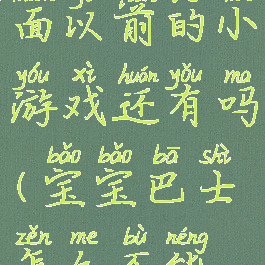 面以前的小
yóu xì huán yǒu ma
游戏还有吗
bǎo bǎo bā shì
(宝宝巴士
zěn me bù néng